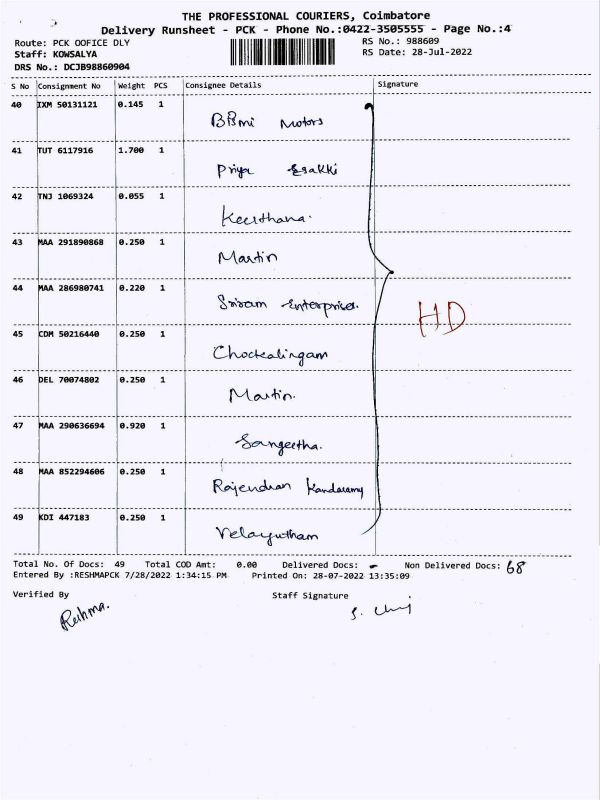 THE PROFESSIONAL COURIERS, Coimbatore
Delivery Runsheet - PCK - Phone No.:0422-3505555 - Page No.:4
Route: PCK OOFICE DLY
RS No.: 988609
Staff: KOWSALYA
RS Date: 28-Jul-2022
DRS No.: DCJB98860904
S No Consignment No Weight PCS Consignee Details Signature
40 IXM 50131121 0.145 1
Bismi Motors
41 TUT 6117916 1.700 1
Priya Esakki
42 TNJ 1069324 0.055 1
Keerthana.
43 MAA 291890868 0.250 1
Martin
44 MAA 286980741 0.220 1
Sriram Enterprises.
HD
45 CDM 50216440 0.250 1
Chockalingam
46 DEL 70074802 0.250 1
Martin.
47 MAA 290636694 0.920 1
Sangeetha.
48 MAA 852294606 0.250 1
Rajendran Kandasamy
49 KDI 447183 0.250 1
Velayutham
Total No. Of Docs: 49 Total COD Amt: 0.00 Delivered Docs: - Non Delivered Docs: 68
Entered By :RESHMAPCK 7/28/2022 1:34:15 PM Printed On: 28-07-2022 13:35:09
Verified By Staff Signature
Reshma.